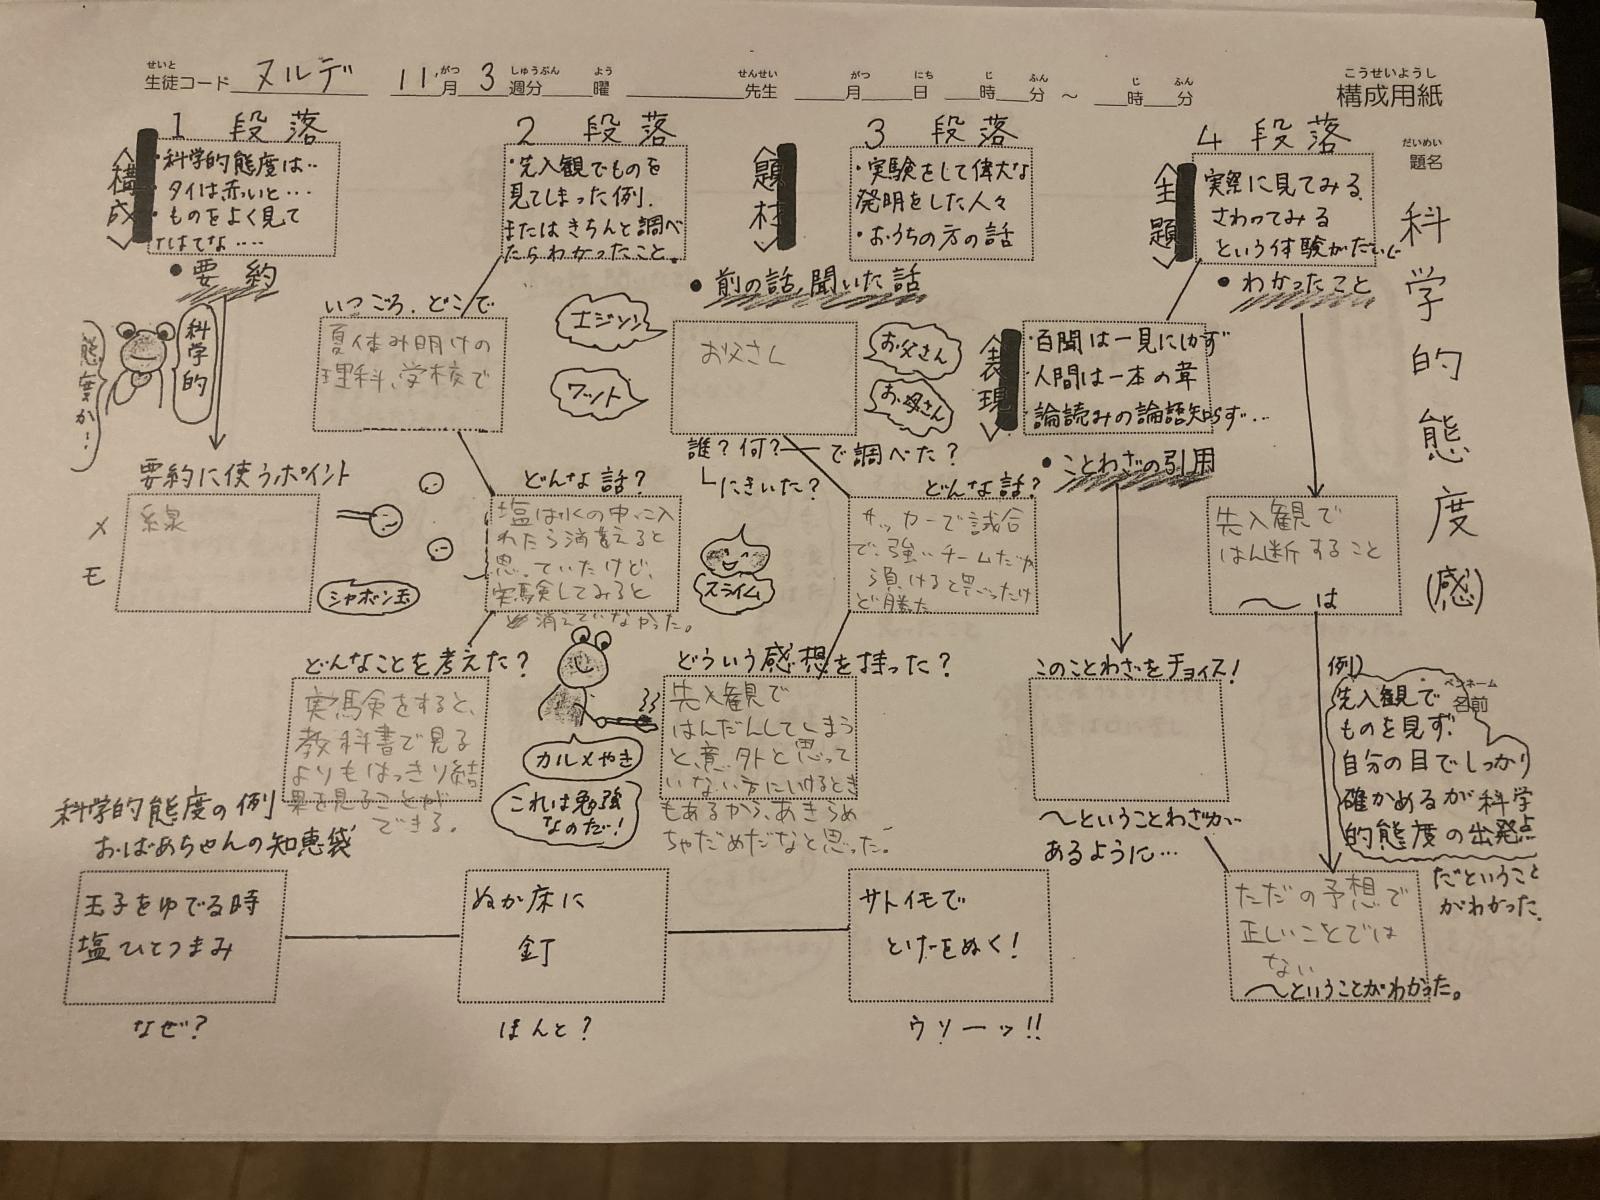 せいと
生徒コード ヌルデ 11月 3週分 曜 先生 月 日 時 分 ~ 時 分
がつ しゅうぶん よう せんせい がつ にち じ ふん じ ふん
こうせいようし
構成用紙
だいめい
題名
科学的態度(感)
ペンネーム
名前
1 段落
構成
・科学的態度は‥
・タイは赤いと…
・ものをよく見て
ではてな‥‥
・要約
科学的
態度か!
要約に使うポイント
メモ
シャボン玉
2 段落
・先入観でものを
見てしまった例.
またはきちんと調べ
たらわかったこと.
いつごろ.どこで
夏休み明けの
理科、学校で
エジソン
ワット
どんな話?
塩は水の中に入
れたら消えると
思っていたけど、
実験してみると
消えていなかった。
どんなことを考えた?
実験をすると、
教科書で見る
よりもはっきり結
果を見ることが
できる。
カルメやき
これは勉強
なのだ!
題材
3 段落
・実験をして偉大な
発明をした人々
・おうちの方の話
・前の話,聞いた話
お父さん
お父さん
お母さん
誰?何?―で調べた?
にきいた?
スライム
どんな話?
サッカーで試合
で、強いチームだから
負けると思ったけ
ど勝った
どういう感想を持った?
先入観で
はんだんしてしまう
と、意外と思って
いない方にいけるとき
もあるから、あきらめ
ちゃだめだなと思った。
主題
4 段落
実際に見てみる.
さわってみる
という体験がだいじ
・わかったこと
表現
・百聞は一見にしかず
・人間は一本の葦
・論語読みの論語知らず…
・ことわざの引用
このことわざをチョイス!
~ということわざが
あるように…
先入観で
はん断すること
~は
例)
先入観で
ものを見ず.
自分の目でしっかり
確かめるが科学
的態度の出発点
だということ
がわかった.
ただの予想で
正しいことでは
ない
~ということがわかった。
科学的態度の例
おばあちゃんの知恵袋
玉子をゆでる時
塩ひとつまみ
なぜ?
ぬか床に
釘
ほんと?
サトイモで
とげをぬく!
ウソーッ!!